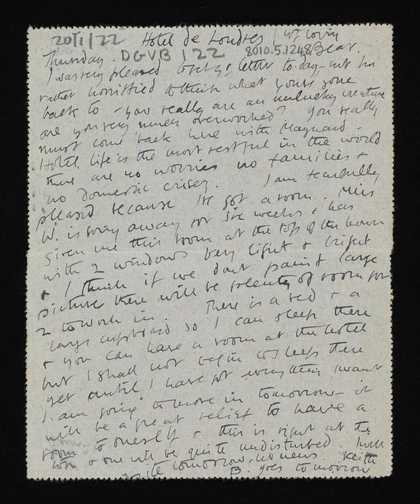 20/1/22 Hotel de Londres
Thursday. DGVB/22 8010.5.1248 Bear.
I was very pleased to get yr letter to-day - but I'm
rather horrified to think what you've gone
back to. You really are an unlucky creature
are you very much overworked? You really
must come back here with Maynard.
Hotel life is the most restful in the world
there are no worries no families &
no domestic crises. I am fearfully
pleased because I've got a room. Miss
W. is away for six weeks & has
given me this room at the top of the house
with 2 windows very light & bright
& I think if we don't paint large
pictures there will be plenty of room for
2 to work in. There is a bed & a
large cupboard so I can sleep there
& you can have a room at the hotel
but I shall not begin to sleep there
yet until I have got everything I want
I am going to move in tomorrow - it
will be a great relief to have a
room to oneself & this is right at the
top & one will be quite undisturbed. I will
tomorrow. No news. Keith
B. goes tomorrow